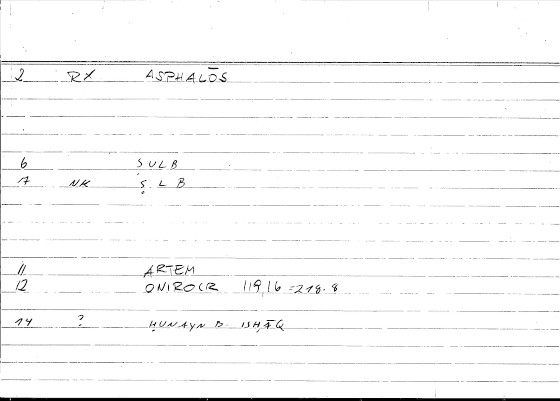 2 RX ASPHALŌS
6 ṢULB
7 NK Ṣ L B
11 ARTEM
12 ONIROCR 119,16 = 218.8
14 ? ḤUNAYN B. ISḤĀQ